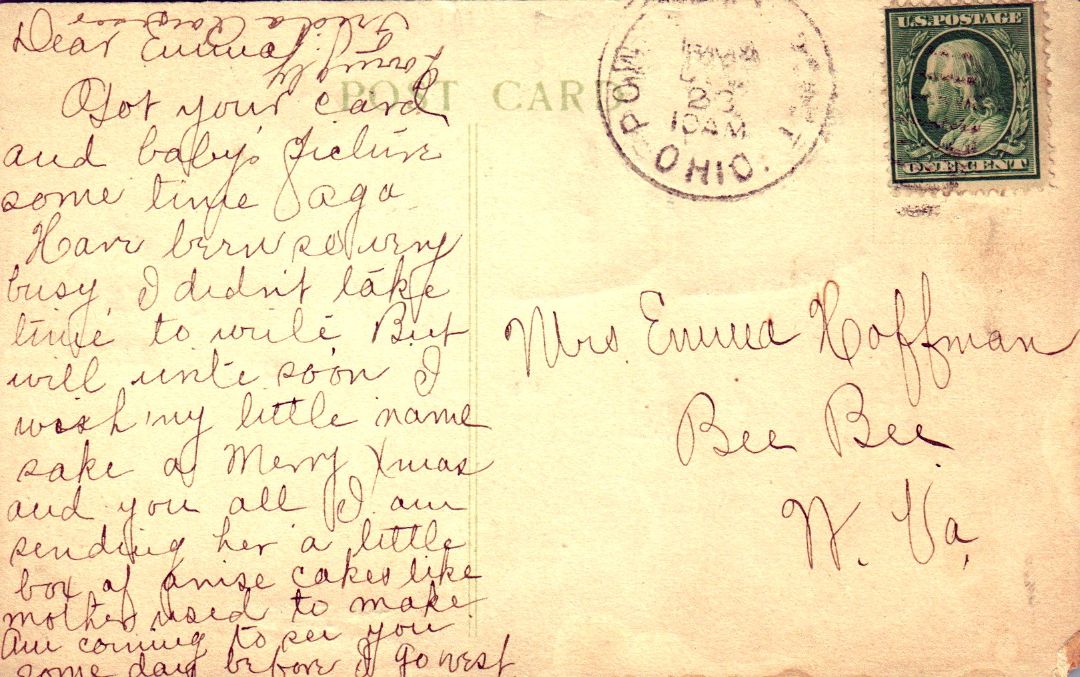 Dear Emma
Got your card
and baby's picture
some time ago
Have been so very
busy I didn't take
time to write But
will write soon I
wish my little name
sake a Merry Xmas
and you all I am
sending her a little
box of anise cakes like
mother used to make
Am coming to see you
some day before I go west
Lovingly
POST CARD
POM
23
10 AM
OHIO.
U.S. POSTAGE
ONE CENT
Mrs. Emma Hoffman
Bee Bee
W. Va.